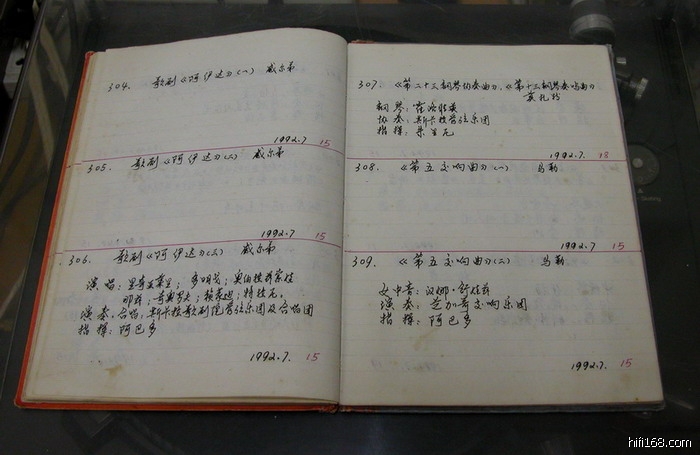 304. 歌剧《阿伊达》(一) 威尔第
1992.7 15
305. 歌剧《阿伊达》(二) 威尔第
1992.7 15
306. 歌剧《阿伊达》(三) 威尔第
演唱:里奇亚莱里;多明戈;奥伯拉兹索娃
演奏、合唱:斯卡拉歌剧院管弦乐团及合唱团
指挥:阿巴多
1992.7. 15
307 《第二十三钢琴协奏曲》,《第十三钢琴奏鸣曲》
莫扎特
钢琴:霍洛维茨
协奏:斯卡拉管弦乐团
指挥:朱里尼
1992.7. 18
308. 《第五交响曲》(一) 马勒
1992.7 15
309. 《第五交响曲》(二) 马勒
女中音:汉娜·舒娃兹
演奏:芝加哥交响乐团
指挥:阿巴多
1992.7. 15
hifi168.com